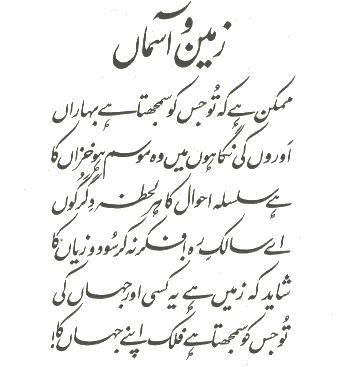 زمین و آسماں
ممکن ہے کہ تُو جس کو سمجھتا ہے بہاراں
اَوروں کی نگاہوں میں وہ موسم ہو خزاں کا
ہے سلسلہ احوال کا ہر لحظہ دِگرگُوں
اے سالکِ رہ! فکر نہ کر سُود و زیاں کا
شاید کہ زمیں ہے یہ کسی اور جہاں کی
تُو جس کو سمجھتا ہے فلک اپنے جہاں کا!